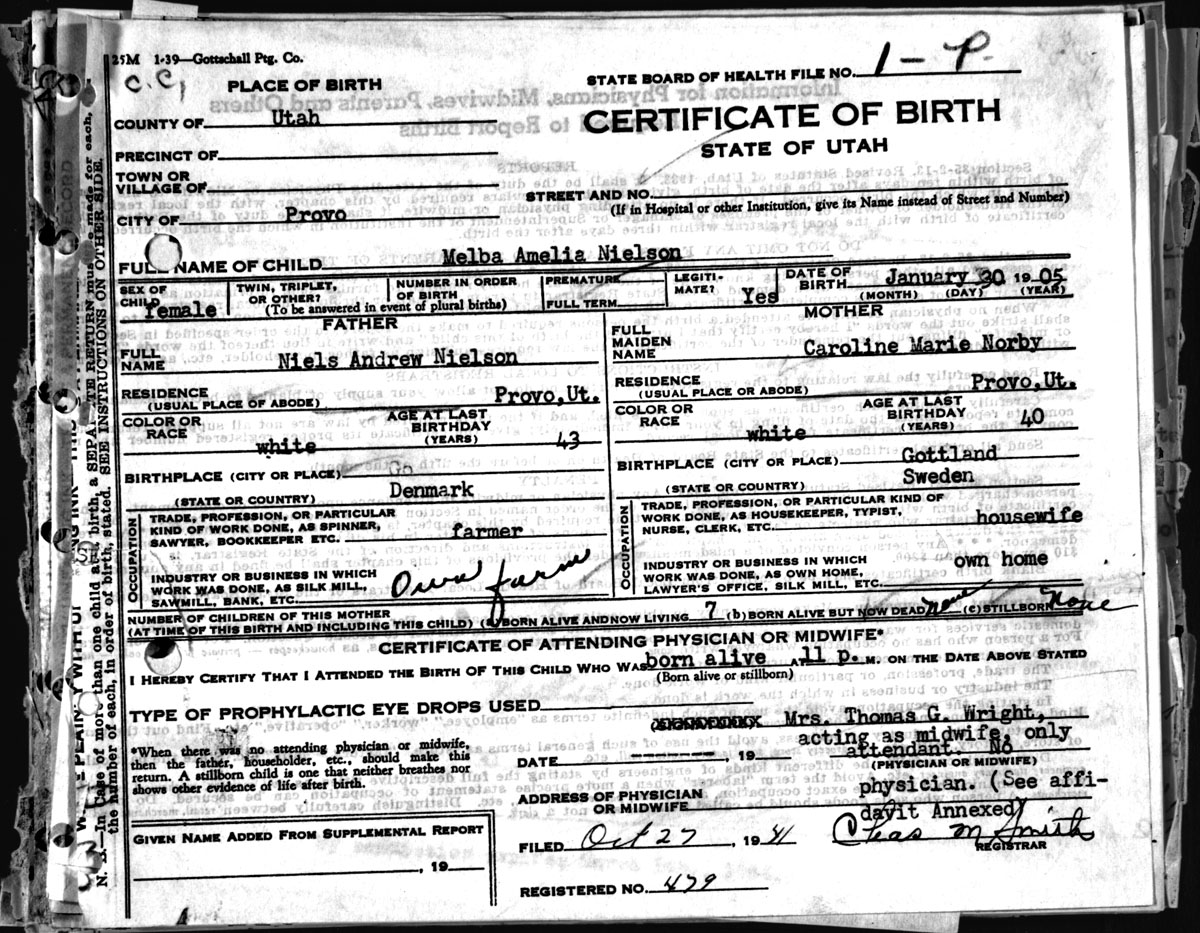 25M 1-39—Gottschall Ptg. Co.
C.C,
PLACE OF BIRTH
STATE BOARD OF HEALTH FILE NO. 1 - P.
COUNTY OF Utah
CERTIFICATE OF BIRTH
STATE OF UTAH
PRECINCT OF
TOWN OR
VILLAGE OF
STREET AND NO.
(If in Hospital or other Institution, give its Name instead of Street and Number)
CITY OF Provo
FULL NAME OF CHILD Melba Amelia Nielson
SEX OF
CHILD female
TWIN, TRIPLET,
OR OTHER?
NUMBER IN ORDER
OF BIRTH
(To be answered in event of plural births)
PREMATURE
FULL TERM
LEGITI-
MATE? Yes
DATE OF
BIRTH January 30 1905
(MONTH) (DAY) (YEAR)
FATHER
FULL
NAME Niels Andrew Nielson
RESIDENCE
(USUAL PLACE OF ABODE) Provo, Ut.
COLOR OR
RACE white
AGE AT LAST
BIRTHDAY
(YEARS) 43
BIRTHPLACE (CITY OR PLACE) Go
(STATE OR COUNTRY) Denmark
OCCUPATION
TRADE, PROFESSION, OR PARTICULAR
KIND OF WORK DONE, AS SPINNER,
SAWYER, BOOKKEEPER ETC. farmer
INDUSTRY OR BUSINESS IN WHICH
WORK WAS DONE, AS SILK MILL,
SAWMILL, BANK, ETC. Own farm
MOTHER
FULL
MAIDEN
NAME Caroline Marie Norby
RESIDENCE
(USUAL PLACE OR ABODE) Provo, Ut.
COLOR OR
RACE white
AGE AT LAST
BIRTHDAY
(YEARS) 40
BIRTHPLACE (CITY OR PLACE) Gottland
(STATE OR COUNTRY) Sweden
OCCUPATION
TRADE, PROFESSION, OR PARTICULAR KIND OF
WORK DONE, AS HOUSEKEEPER, TYPIST,
NURSE, CLERK, ETC. housewife
INDUSTRY OR BUSINESS IN WHICH
WORK WAS DONE, AS OWN HOME,
LAWYER'S OFFICE, SILK MILL, ETC. own home
NUMBER OF CHILDREN OF THIS MOTHER
(AT TIME OF THIS BIRTH AND INCLUDING THIS CHILD) (a) BORN ALIVE AND NOW LIVING 7 (b) BORN ALIVE BUT NOW DEAD None (c) STILLBORN None
CERTIFICATE OF ATTENDING PHYSICIAN OR MIDWIFE*
I HEREBY CERTIFY THAT I ATTENDED THE BIRTH OF THIS CHILD WHO WAS born alive AT 11 p. M. ON THE DATE ABOVE STATED
(Born alive or stillborn)
TYPE OF PROPHYLACTIC EYE DROPS USED
Mrs. Thomas G. Wright,
acting as midwife, only
attendant. No
(PHYSICIAN OR MIDWIFE)
physician. (See affi-
davit Annexed)
*When there was no attending physician or midwife,
then the father, householder, etc., should make this
return. A stillborn child is one that neither breathes nor
shows other evidence of life after birth.
DATE ---------, 19
ADDRESS OF PHYSICIAN
OR MIDWIFE
GIVEN NAME ADDED FROM SUPPLEMENTAL REPORT
, 19
FILED Oct 27, 1941
Chas M Smith
REGISTRAR
REGISTERED NO. 479
N. B.—In Case of more than one child at a birth, a SEPARATE RETURN must be made for each,
the number of each, in order of birth, stated. SEE INSTRUCTIONS ON OTHER SIDE.